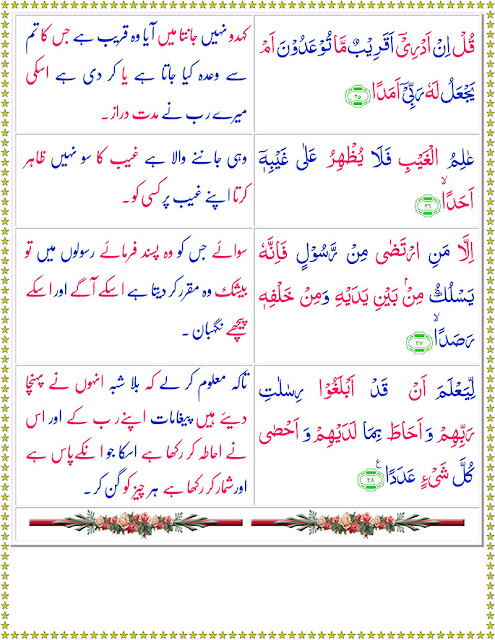 قُلْ اِنْ اَدْرِیْۤ اَقَرِیْبٌ مَّا تُوْعَدُوْنَ اَمْ
یَجْعَلُ لَهٗ رَبِّیْۤ اَمَدًا ﴿۲۵﴾
کہدو نہیں جانتا میں آیا وہ قریب ہے جس کا تم
سے وعدہ کیا جاتا ہے یا کر دی ہے اسکی
میرے رب نے مدت دراز۔
عٰلِمُ الْغَیْبِ فَلَا یُظْهِرُ عَلٰی غَیْبِهٖۤ
اَحَدًاۙ ﴿۲۶﴾
وہی جاننے والا ہے غیب کا سو نہیں ظاہر
کرتا اپنے غیب پر کسی کو۔
اِلَّا مَنِ ارْتَضٰی مِنْ رَّسُوْلٍ فَاِنَّهٗ
یَسْلُكُ مِنْۢ بَیْنِ یَدَیْهِ وَمِنْ خَلْفِهٖ
رَصَدًاۙ ﴿۲۷﴾
سوائے جس کو وہ پسند فرمائے رسولوں میں تو
بیشک وہ مقرر کر دیتا ہے اسکے آگے اور اسکے
پیچھے نگہبان۔
لِّیَعْلَمَ اَنْ قَدْ اَبْلَغُوْا رِسٰلٰتِ
رَبِّهِمْ وَ اَحَاطَ بِمَا لَدَیْهِمْ وَ اَحْصٰی
كُلَّ شَیْءٍ عَدَدًا۠ ﴿۲۸﴾
تاکہ معلوم کر لے کہ بلا شبہ انہوں نے پہنچا
دیئے ہیں پیغامات اپنے رب کے اور اس
نے احاطہ کر رکھا ہے اسکا جو انکے پاس ہے
اور شمار کر رکھا ہے ہر چیز کو گن کر۔